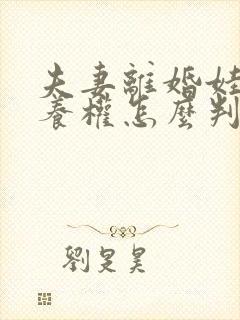 夫妻離婚娃
養權怎麼判
劉是昊